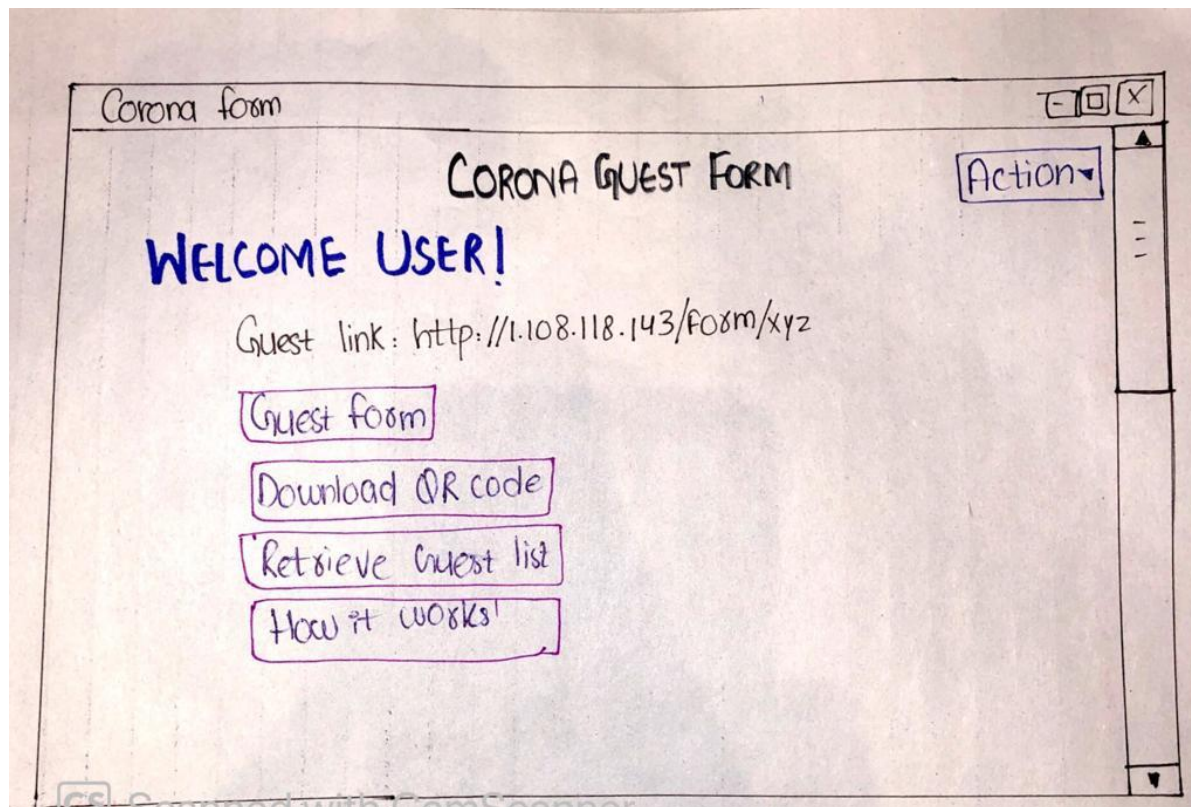 Corona form
CORONA GUEST FORM
Action
WELCOME USER!
Guest link: http://1.108.118.143/form/xyz
Guest form
Download QR code
Retrieve Guest list
How it works
CS Scanned with CamScanner